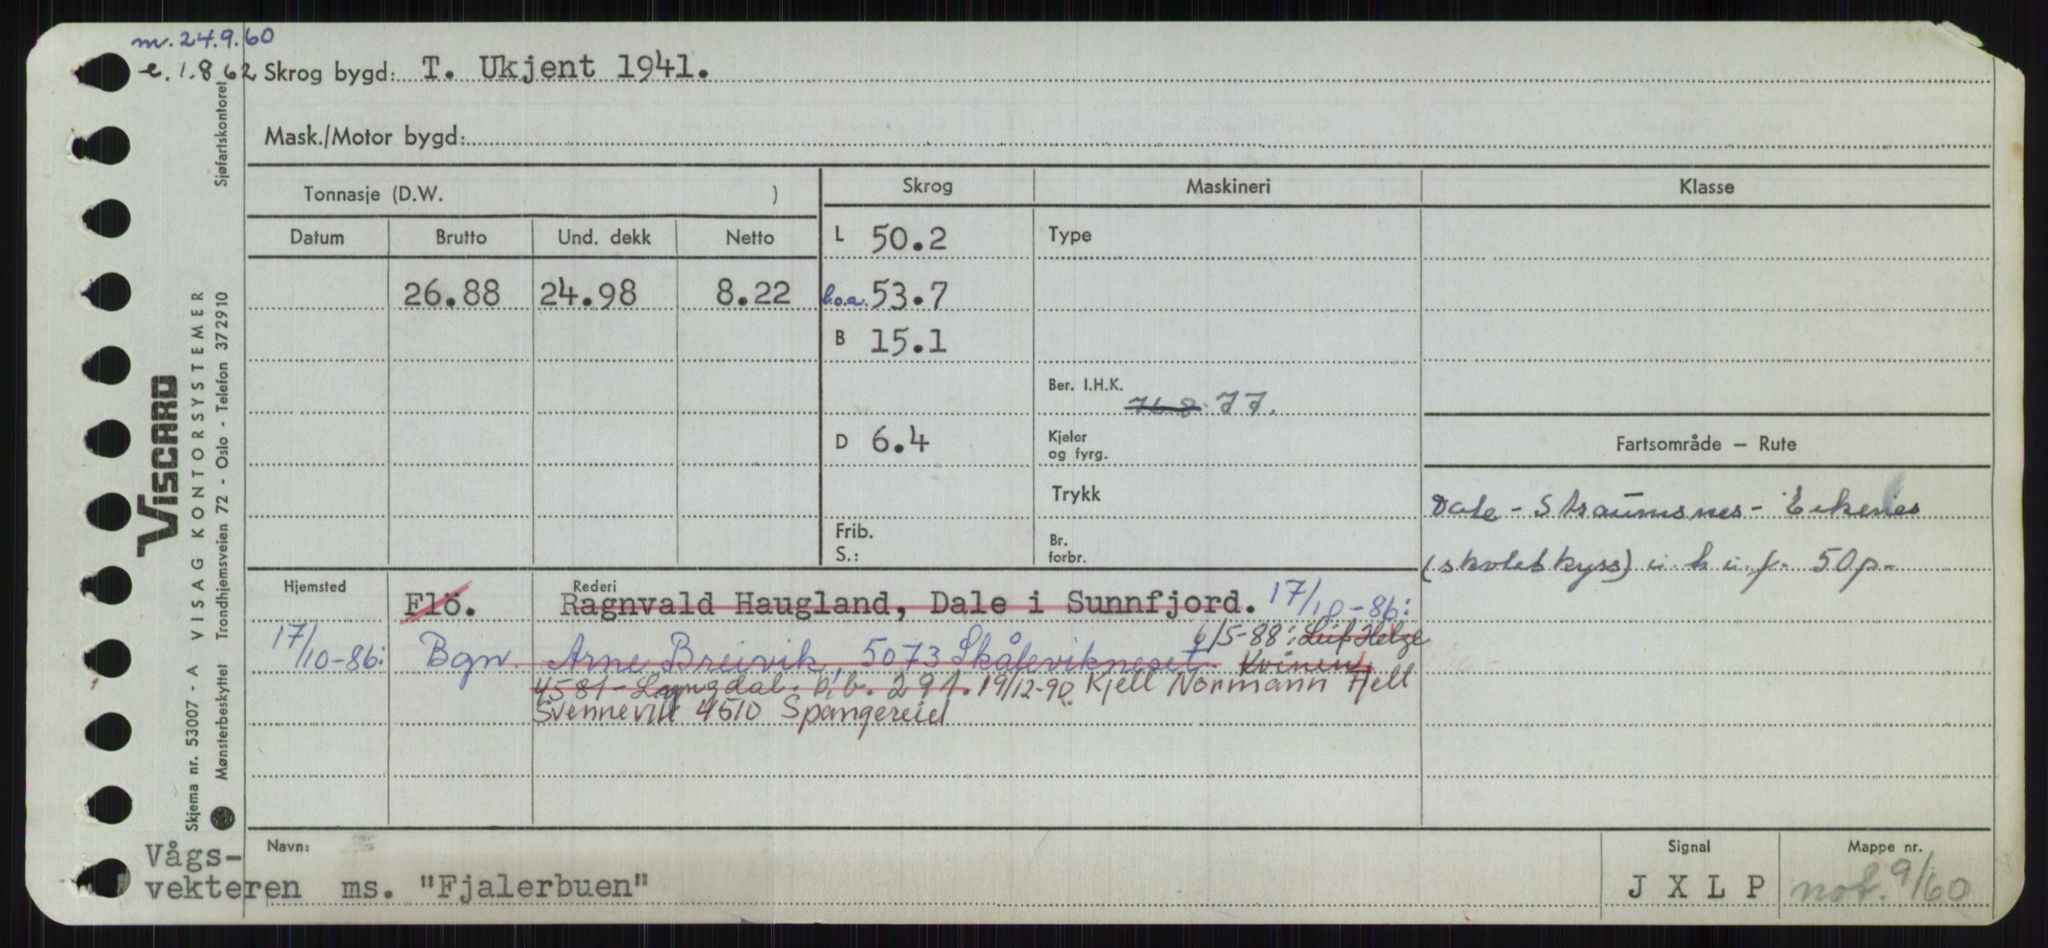 m. 24.9.60
e. 1.8 62 Skrog bygd: T. Ukjent 1941.
Mask./Motor bygd:
Tonnasje (D.W. ) Skrog Maskineri Klasse
Datum Brutto Und. dekk Netto L 50.2 Type
26.88 24.98 8.22 l.o.a. 53.7
B 15.1
Ber. I.H.K. 77.
D 6.4 Kjeler og fyrg. Fartsområde – Rute
Trykk
Dale - Straumsnes - Eikenes
Frib.
S.:
Br. forbr.
(skoleskyss) i h i f. 50 p.
Hjemsted Rederi
Flö. Ragnvald Haugland, Dale i Sunnfjord. 17/10-86:
17/10-86: Bgn. Arne Breivik, 5073 Skålevikneset 6/5-88: Leif Helge Kvinen,
4581 - Lyngdal. b.b. 291. 19/12-90 Kjell Normann Fjell
Svennevik 4510 Spangereid
Navn: Signal Mappe nr.
Vågs-
vekteren ms. "Fjalerbuen" J X L P not. 9/60
Sjøfartskontoret
VISCARD
Skjema nr. 53007 - A VISAG KONTORSYSTEMER
Mønsterbeskyttet Trondhjemsveien 72 - Oslo - Telefon 372910